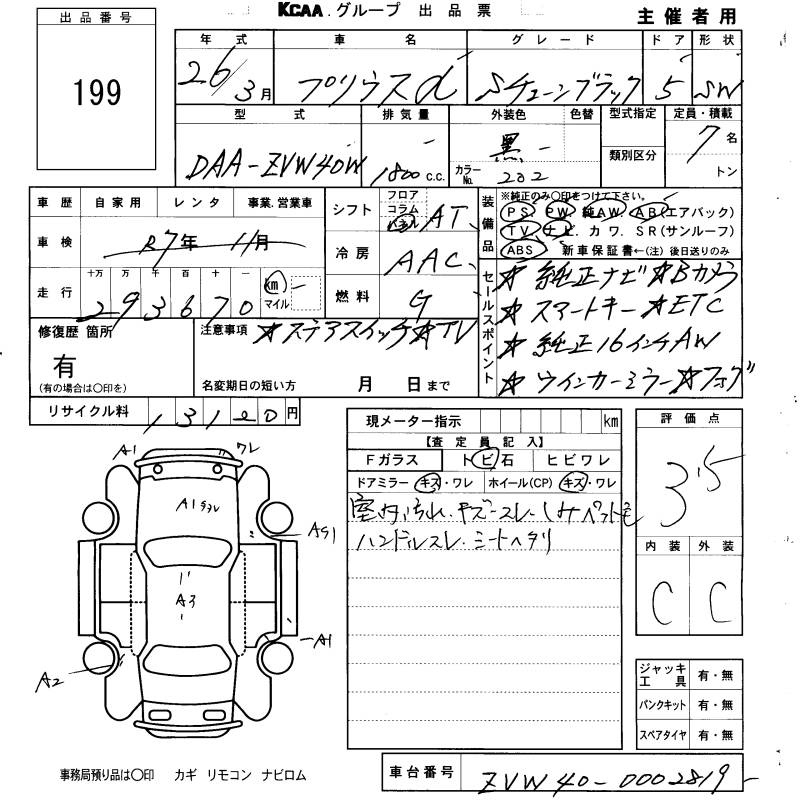 KCAA グループ 出品票
主催者用
出品番号
199
年式 車名 グレード ドア 形状
26/3月 プリウスα Sチューンブラック 5 SW
型式 排気量 外装色 色替 型式指定 定員・積載
DAA-ZVW40W 1800 c.c. 黒 カラーNo. 202 類別区分 7名
トン
車歴 自家用 レンタ 事業.営業車
車検 R7年 11月
走行 十万 万 千 百 十 一
293670 km マイル
シフト フロア コラム パネル AT
冷房 AAC
燃料 G
装備品
※純正のみ〇印をつけて下さい。
PS PW 純AW AB(エアバック)
TV ナビ カワ SR(サンルーフ)
ABS 新車保証書←(注) 後日送りのみ
セールスポイント
☆純正ナビ☆Bカメラ
☆スマートキー☆ETC
☆純正16インチAW
☆ウインカーミラー☆フォグ
修復歴 箇所
有
(有の場合は〇印を)
注意事項 ☆ステアスイッチ☆TV
名変期日の短い方 月 日まで
リサイクル料 13120円
現メーター指示 km
【査定員記入】
Fガラス トビ石 ヒビワレ
ドアミラー キズ・ワレ ホイール(CP) キズ・ワレ
室内汚れ・キズ・スレ・シミ
ハンドルスレ・シートヘタリ
評価点
3.5
内装 外装
C C
A1 ワレ
A1
AS1
A3
A1
A2
ジャッキ工具 有・無
パンクキット 有・無
スペアタイヤ 有・無
事務局預り品は〇印 カギ リモコン ナビロム
車台番号 ZVW40-0002819